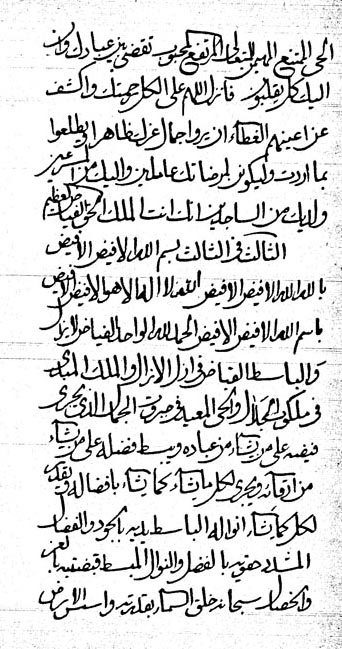 الحى الممتنع المهيمن المتعالى المرتفع المحبوب تقضى بين عبادك وان
اليك كل ينقلبون فانزل اللهم على الكل رحمتك واكشف
عن اعينهم الغطاء ان يروا جمال عزك ظاهرا ويطلعوا
بما اردت وليكونن لمرضاتك عاملين واليك من
ولديك من الساجدين انك انت الملك الحق الفياض العظيم
الثالث فى الثالث بسم الله الافيض الافيض
بالله الله الافيض الافيض الله لا اله الا هو الافيض الافيض
باسم الله الافيض الافيض الحمد لله الواحد الفياض لا يزال
والباسط الفياض فى ازل الازال والملك
فى ملكوت الجلال والحى المعيد فى جبروت الجمال الذى يجرى
فيضه على من يشاء من عباده ويبسط فضله على من يشاء
من ارقائه ويجرى لكل ما يشاء كما يشاء بافضاله ويقدر
لكل كما يشاء انواله الباسط يديه بالجود والفضال
حقويه بالفضل والنوال المنبسط قبضتيه
سبحانه خلق السماء بقدرته الارض